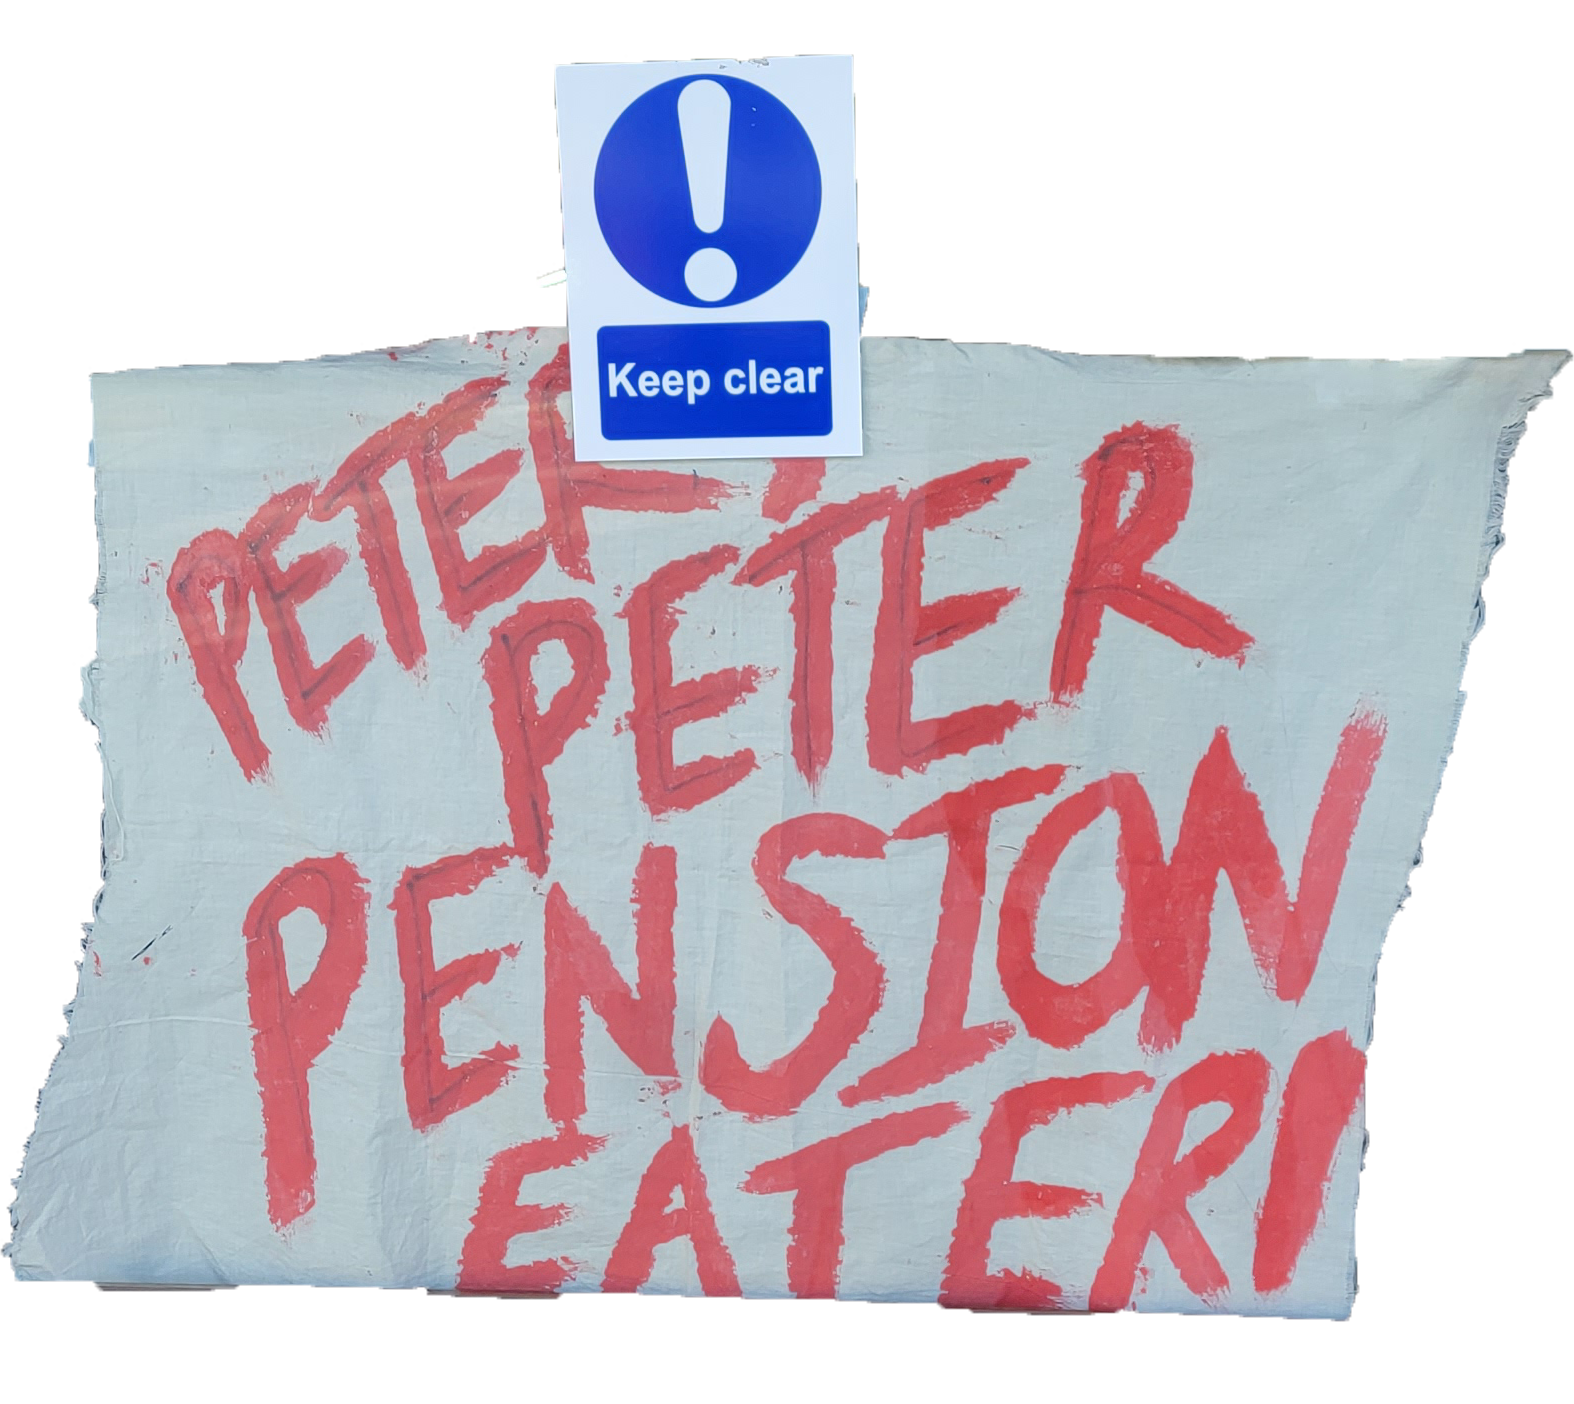 Keep clear
PETER,
PETER
PENSION
EATER!